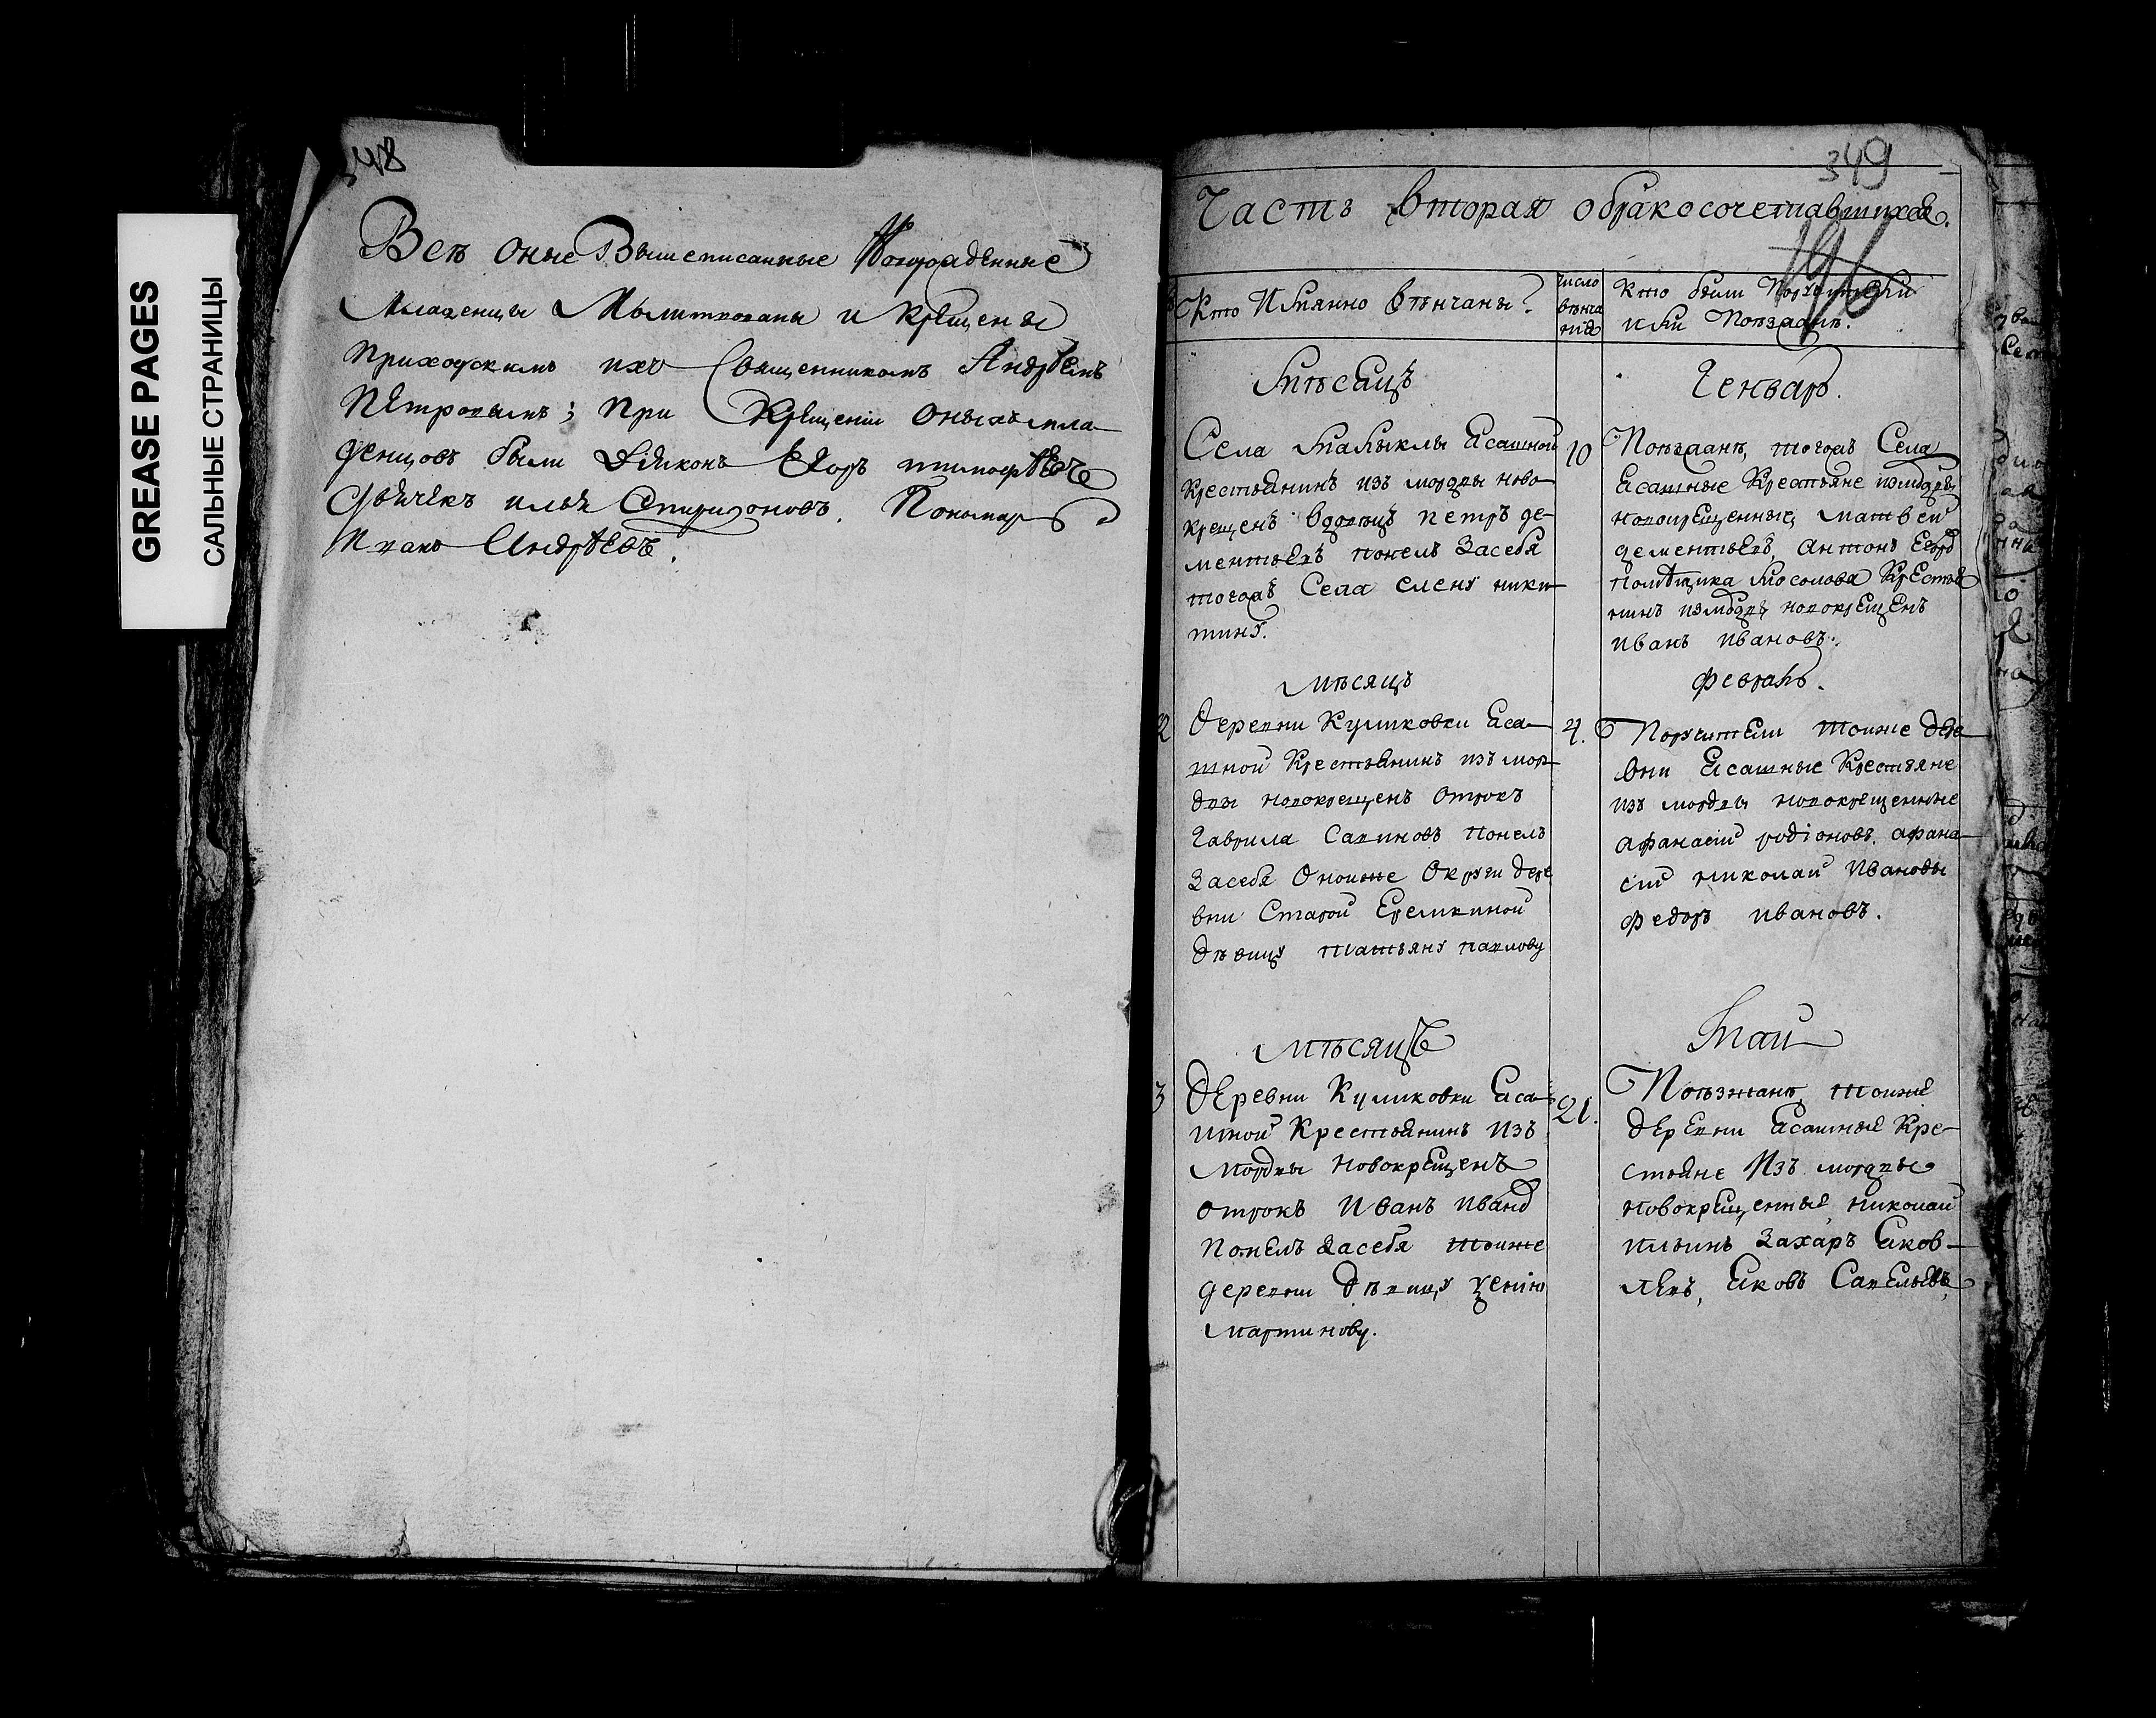 GREASE PAGES
САЛЬНЫЕ СТРАНИЦЫ
348
Всѣ оные Вышеписанные
Младенцы Молитвованы и крещены
приходскимъ ихъ Священникомъ Андрѣемъ
Петровымъ; при Крещении оныхъ мла
денцовъ были Діяконъ Егоръ тимофѣевъ
Дьячекъ илья Спиридоновъ. Пономарь
Иванъ Андрѣевъ.
349
Часть вторая обракосочетавшихся.
196
Кто Имянно вѣнчаны?
число вѣнча нія
Кто были Поручители
или Поѣзданѣ.
Мѣсяцъ
Генварь.
Села Малыклы Ясашной
крестьянинъ изъ мордвы ново
крещенъ вдовецъ петръ де-
ментьевъ понелъ Засебя
тогожъ Села елену ники
тину.
10
Поѣзданѣ, тогожъ Села
Ясашные Крестьяне измордвы
новокрещенные, матвеи
дементьевъ, антонъ
помѣщика Мосолова Крестья
нинъ измордвы новокрещенъ
иванъ ивановъ.
мѣсяцъ
февраль.
2
деревни Куликовки Яса
шной Крестьянинъ изъ мор
двы новокрещенъ отрокъ
Гаврила Савиновъ понелъ
Засебя Оноиже Округи дере
вни Старой Еремкиной
дѣвицу татьяну павлову
4.
Поручители тоиже дере
вни Ясашные Крестьяне
изъ мордвы новокрещенные
афанасіи родіоновъ, афана
сіи николаи Ивановы
федоръ ивановъ.
мѣсяцъ
Маи
3
деревни Куликовки Яса
шной Крестьянинъ Изъ
мордвы новокрещенъ
отрокъ иванъ иванов
понелъ Засебя тоиже
деревни дѣвицу
мартинову.
21.
Поѣзжанѣ, тоиже
деревни Ясашные Кре-
стьяне Изъ мордвы
новокрещенные николаи
ильинъ Захаръ Яков-
левъ, Яковъ Савельевъ,